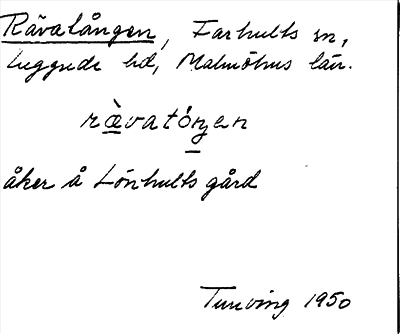 Rävalången, Farhults sn,
Luggude hd, Malmöhus län.
rævatóŋen
åker å Lönhults gård
Tunving 1950